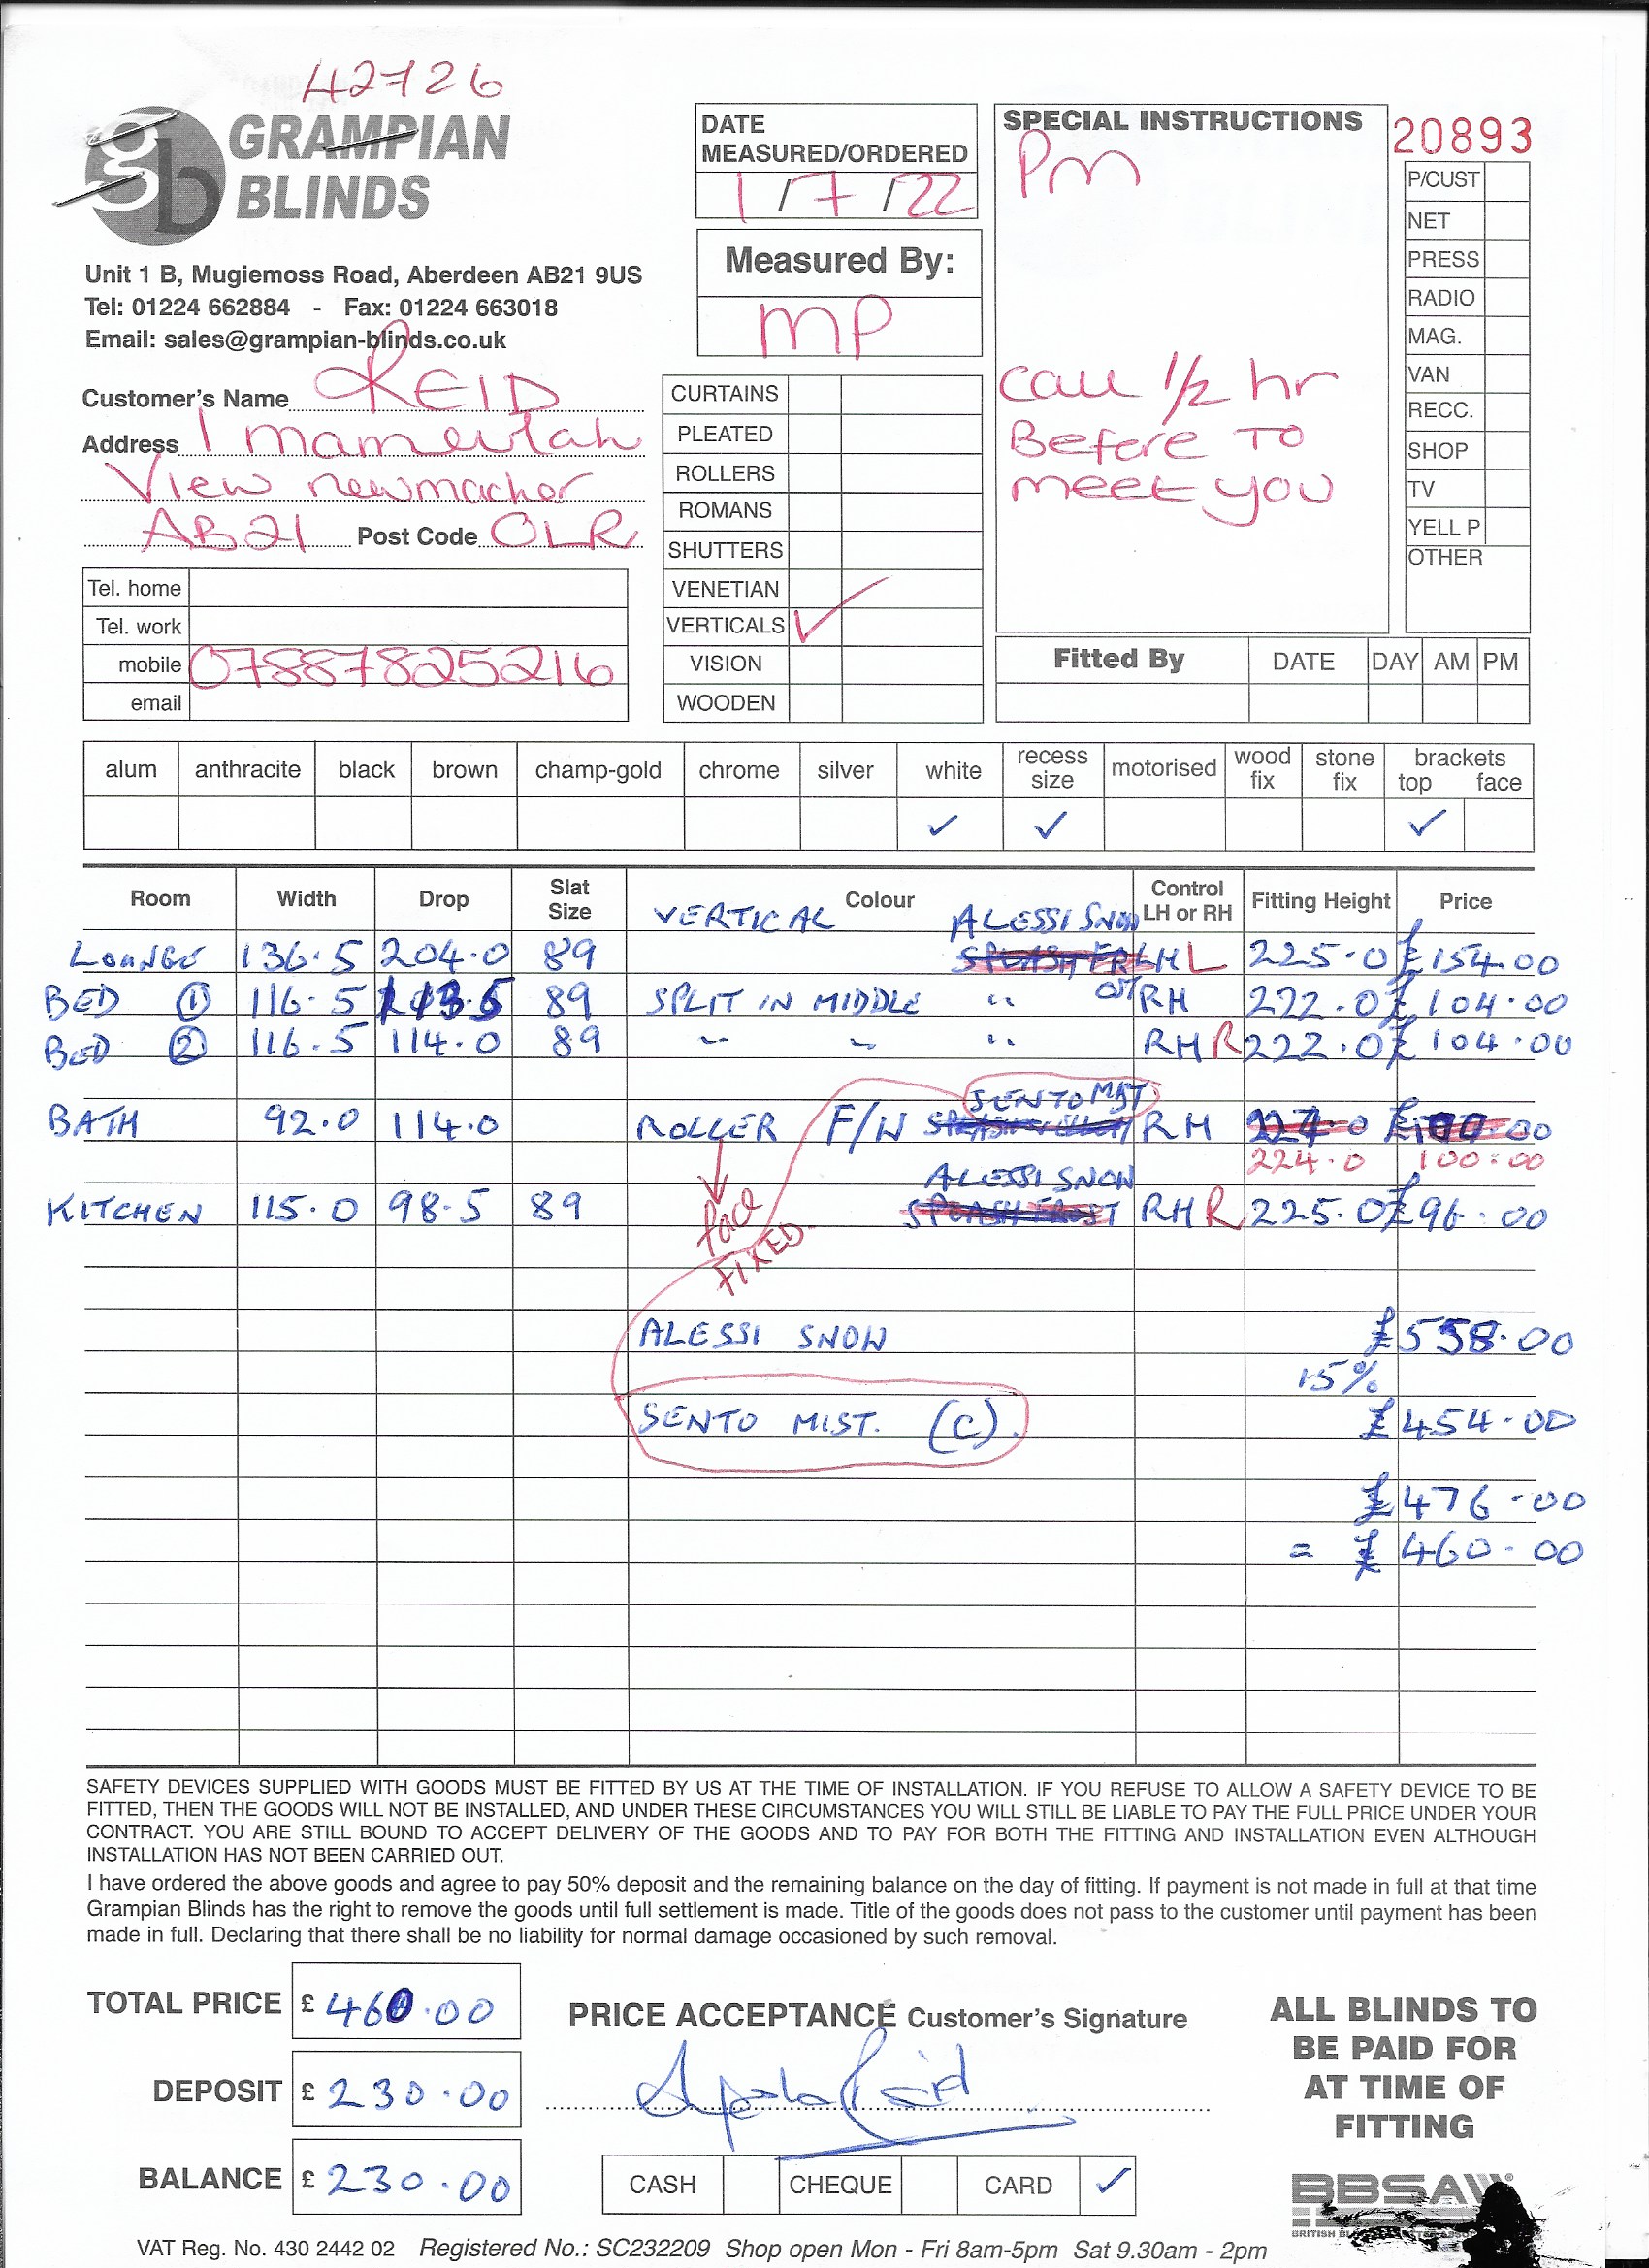 42726
GRAMPIAN
BLINDS
Unit 1 B, Mugiemoss Road, Aberdeen AB21 9US
Tel: 01224 662884 - Fax: 01224 663018
Email: sales@grampian-blinds.co.uk
Customer's Name REID
Address 1
View newmachar
AB21 Post Code OLR
Tel. home
Tel. work
mobile 07887825216
email
DATE
MEASURED/ORDERED
1/7/22
Measured By:
MP
CURTAINS
PLEATED
ROLLERS
ROMANS
SHUTTERS
VENETIAN
VERTICALS ✓
VISION
WOODEN
SPECIAL INSTRUCTIONS
Pm
Call 1/2 hr
Before To
meet you
20893
P/CUST
NET
PRESS
RADIO
MAG.
VAN
RECC.
SHOP
TV
YELL P
OTHER
Fitted By DATE DAY AM PM
alum anthracite black brown champ-gold chrome silver white recess size motorised wood fix stone fix brackets top face
✓ ✓ ✓
Room Width Drop Slat Size Colour Control LH or RH Fitting Height Price
VERTICAL ALESSI SNOW
LOUNGE 136.5 204.0 89 LH L 225.0 £154.00
BED ① 116.5 113.5 89 SPLIT IN MIDDLE " RH 222.0 £104.00
BED ② 116.5 114.0 89 " " " RH R 222.0 £104.00
SENTO MIST
BATH 92.0 114.0 ROLLER F/W RH
224.0 100.00
face
FIXED
ALESSI SNOW
KITCHEN 115.0 98.5 89 SPLASH FROST RH R 225.0 £96.00
ALESSI SNOW £558.00
15%
SENTO MIST. (C). £454.00
£476.00
= £460.00
SAFETY DEVICES SUPPLIED WITH GOODS MUST BE FITTED BY US AT THE TIME OF INSTALLATION. IF YOU REFUSE TO ALLOW A SAFETY DEVICE TO BE
FITTED, THEN THE GOODS WILL NOT BE INSTALLED, AND UNDER THESE CIRCUMSTANCES YOU WILL STILL BE LIABLE TO PAY THE FULL PRICE UNDER YOUR
CONTRACT. YOU ARE STILL BOUND TO ACCEPT DELIVERY OF THE GOODS AND TO PAY FOR BOTH THE FITTING AND INSTALLATION EVEN ALTHOUGH
INSTALLATION HAS NOT BEEN CARRIED OUT.
I have ordered the above goods and agree to pay 50% deposit and the remaining balance on the day of fitting. If payment is not made in full at that time
Grampian Blinds has the right to remove the goods until full settlement is made. Title of the goods does not pass to the customer until payment has been
made in full. Declaring that there shall be no liability for normal damage occasioned by such removal.
TOTAL PRICE £ 460.00
DEPOSIT £ 230.00
BALANCE £ 230.00
PRICE ACCEPTANCE Customer's Signature
CASH CHEQUE CARD ✓
ALL BLINDS TO
BE PAID FOR
AT TIME OF
FITTING
BBSA
BRITISH
VAT Reg. No. 430 2442 02 Registered No.: SC232209 Shop open Mon - Fri 8am-5pm Sat 9.30am - 2pm